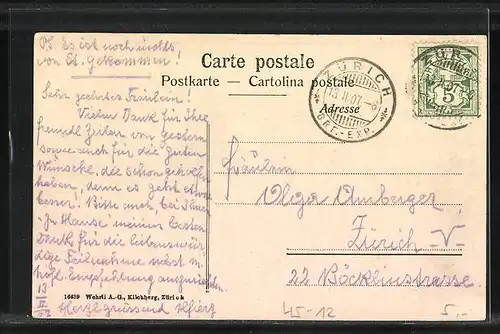 PS Es ist noch nichts
von St. gekommen!
Sehr geehrtes Fräulein!
Vielen Dank für Ihre
freundl Zeilen von gestern
sowie auch für die guten
Wünsche, die schon geholfen
haben, denn es geht etwas
besser! Bitte auch, bei Ihnen
"zu Hause" meinen besten
Dank für die liebenswür
dige Teilnahme nebst m.
hofl. Empfehlung
Herzl grüssend
Carte postale
Postkarte — Cartolina postale
Adresse
ZÜRICH
13.II.07.-6
BRF.-EXP.
5
Fräulein
Olga Amberger
Zürich V
22 Böcklinstrasse
16659 Wehrli A.-G., Kilchberg, Zürich
45-12
5,-